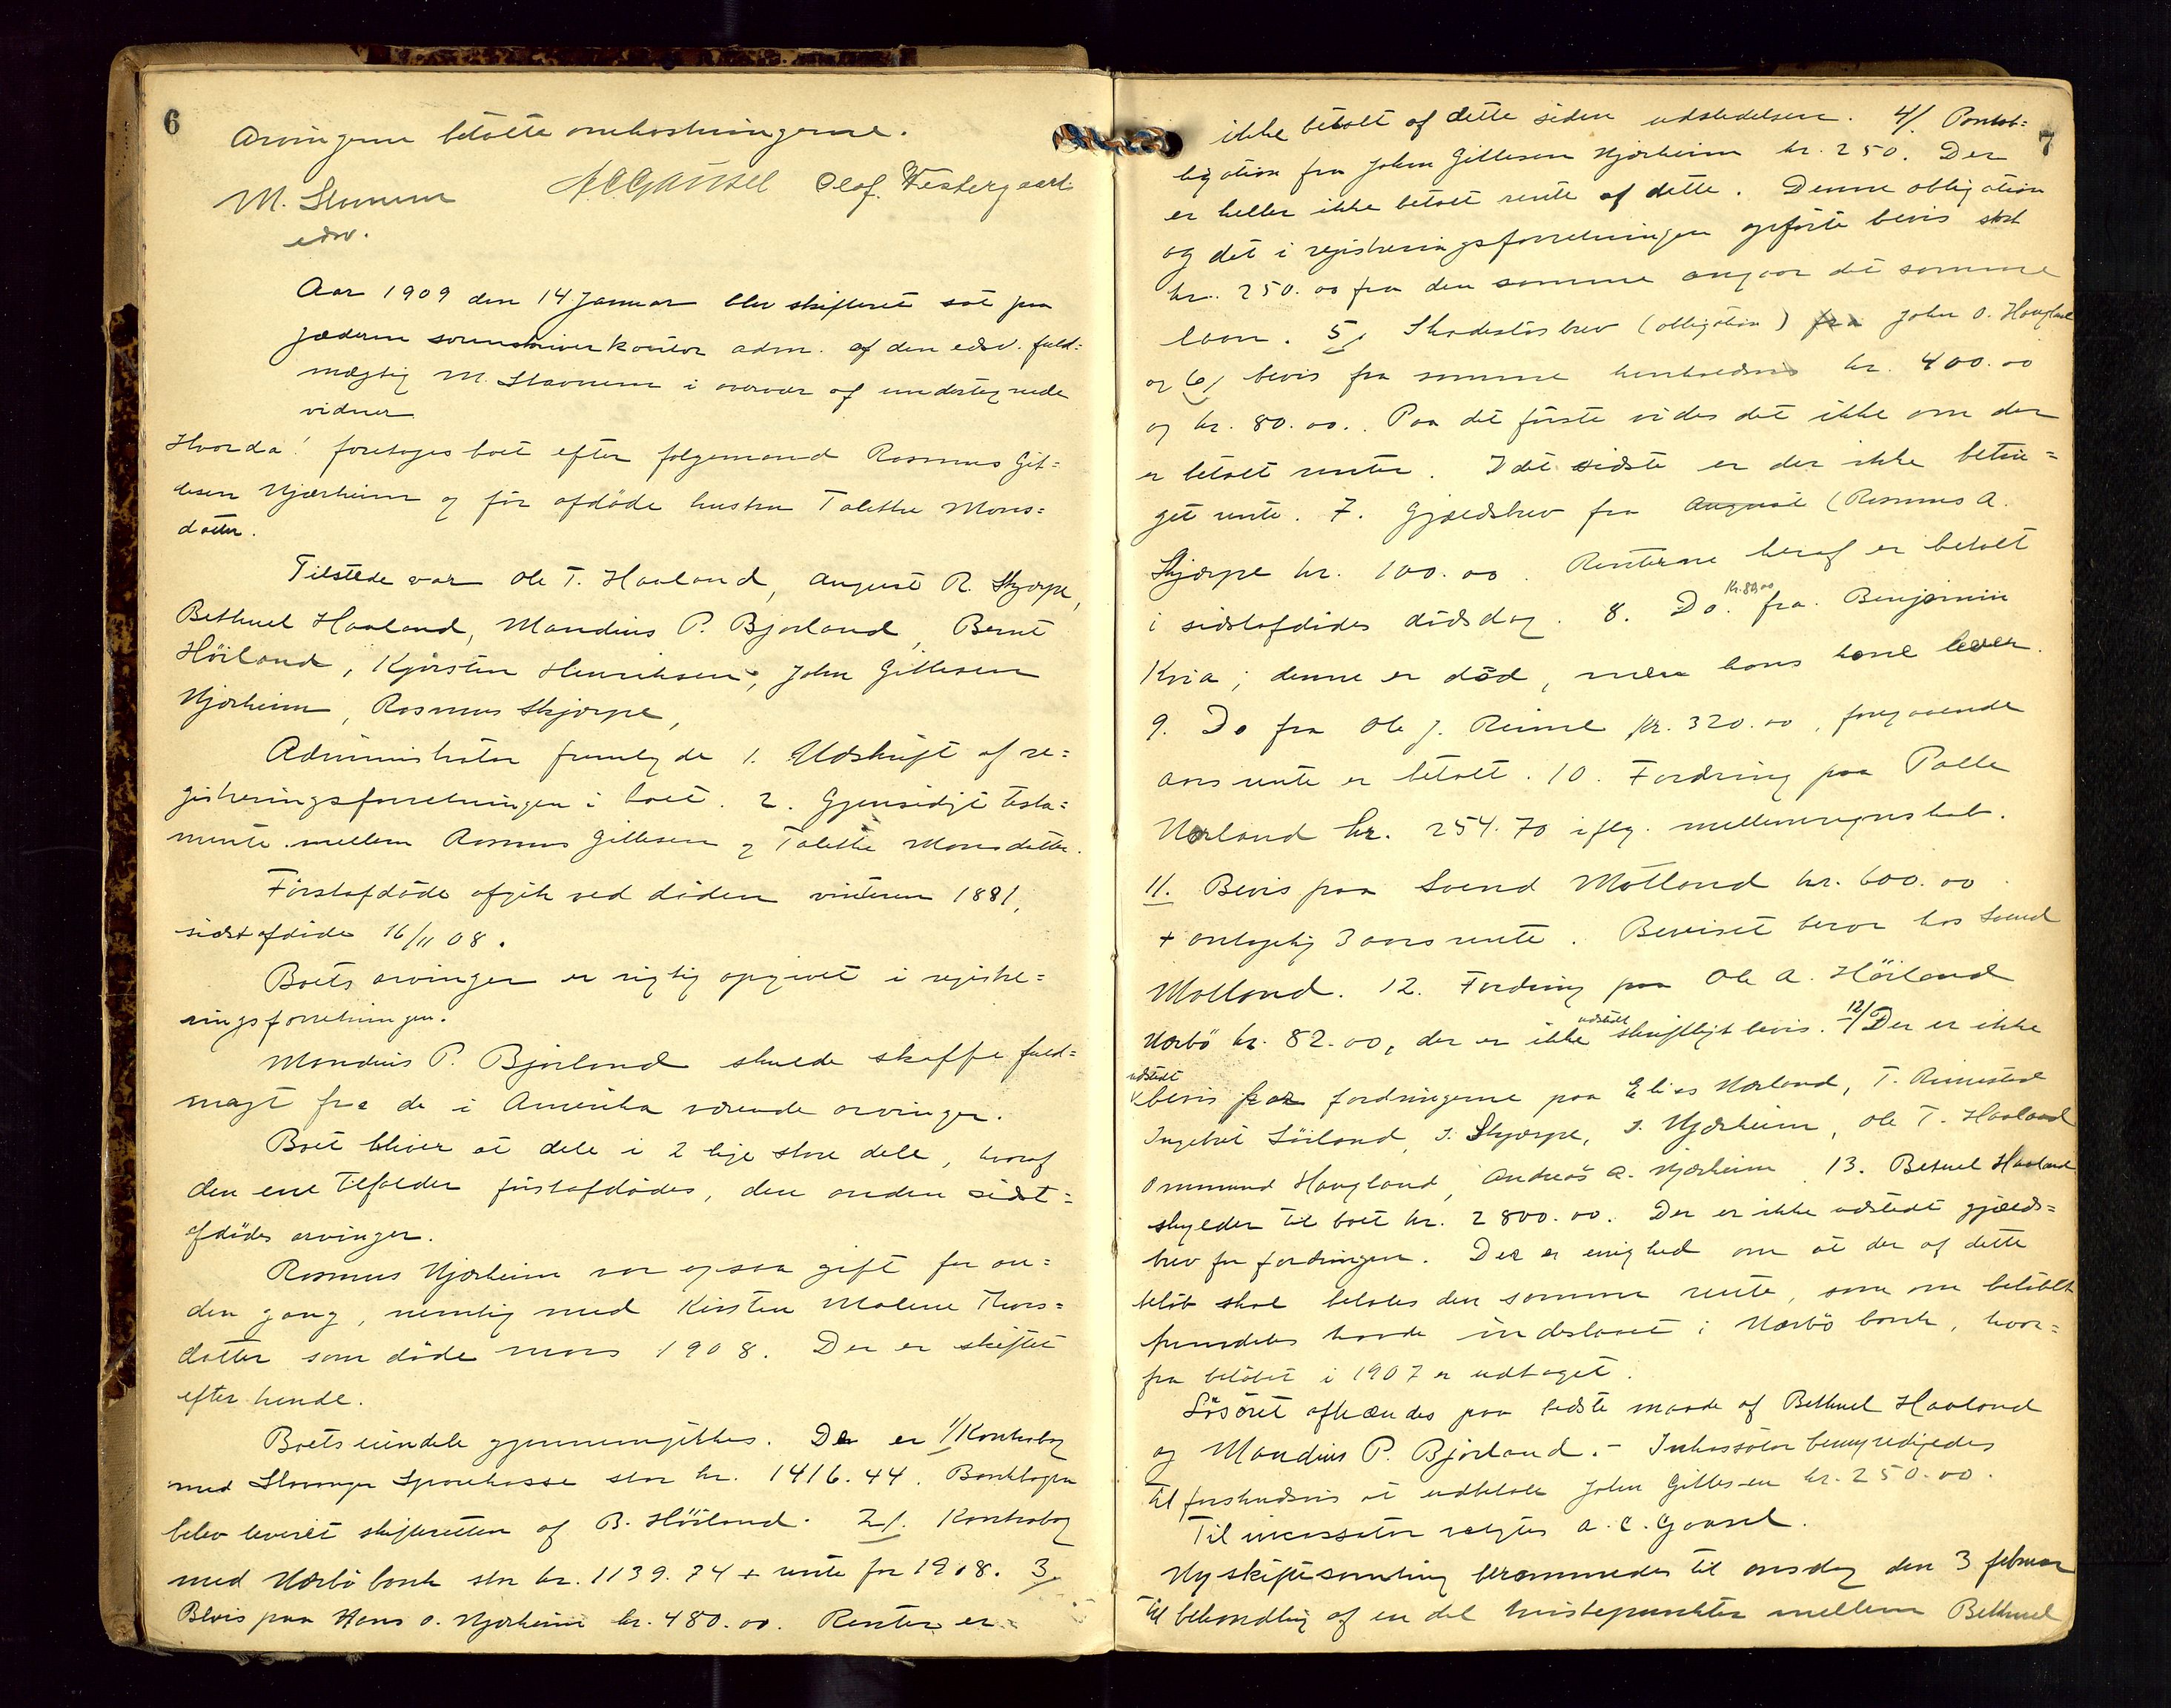 6
Arvingerne betalte omkostningerne.
M. Stavnem A C Gausel Olaf. Westergaard
edsv.
Aar 1909 den 14 Januar blev skifteret sat paa
Jæderen sorenskriverkontor adm. af den edsv. fuld=
mægtig M. Stavnem i overvær af undertegnede
vidner
Hvorda! foretoges boet efter følgemand Rasmus Git=
lesen Njærheim og før afdöde hustru Talette Mons=
datter.
Tilstede var Ole T. Haaland, August R. Skjærpe,
Bethuel Haaland, Mandius P. Bjorland, Bernt
Höiland, Kjørsten Henriksen, John Gitlesen
Njærheim, Rasmus Skjærpe,
Administrator fremlagde 1. Udskrift af re=
gistreringsforretningen i boet. 2. Gjensidigt testa=
mente mellem Rasmus Gitlesen og Talette Monsdatter.
Förstafdöde afgik ved döden vinteren 1881,
sidstafdöde 16/11 08.
Boets arvinger er rigtig opgivet i registre=
ringsforretningen.
Mandius P. Bjorland skulde skaffe fuld=
magt fra de i Amerika værende arvinger.
Boet bliver at dele i 2 lige store dele, hvoraf
den ene tilfalder förstafdödes, den anden sidst=
afdödes arvinger.
Rasmus Njærheim var ogsaa gift for an=
den gang, nemlig med Kirsten Malene Thors=
datter som döde mars 1908. Der er skiftet
efter hende.
Boets eiendele gjennemgikkes. Der er 1/ Kontrabog
med Stavanger Sparekasse stor kr. 1416.44. Bankbogen
blev leveret skifteretten af B. Höiland. 2/. Kontrabog
med Nærbö bank stor kr. 1139.74 + rente for 1908. 3/.
Bevis paa Hans O. Njærheim kr. 480.00. Renter er
7
ikke betalt af dette siden udstedelsen. 4/. Pantob=
ligation fra John Gitlesen Njærheim kr. 250. Der
er heller ikke betalt rente af dette. Denne obligation
og det i registreringsforretningen opförte bevis stort
kr. 250.00 fra den samme angaar det samme
laan. 5/ Skadeslösbrev (obligation) fra John O. Haugland
og 6/ bevis fra samme henholdsvis kr. 400.00
og kr. 80.00. Paa det förste vides det ikke om der
er betalt renter. I det sidste er der ikke betin=
get rente. 7. Gjældsbrev fra August (Rasmus A.
Skjærpe kr. 100.00. Renterne heraf er betalt
i sidstafdödes dödsdag. 8. Do. kr. 80.00 fra Benjamin
Kvia; denne er död, men hans kone lever.
9. Do fra Ole J. Reime kr. 320.00, foregaaende
aars rente er betalt. 10. Fordring paa Palle
Nærland kr. 254.70 iflg. mellemregnskab.
11. Bevis paa Svend Motland kr. 600.00
+ antagelig 3 aars rente. Beviset beror hos Svend
Motland. 12. Fordring paa Ole A. Höiland
Nærbö kr. 82.00, der er ikke udstedt skriftligt bevis. 12/ Der er ikke
udstedt bevis for fordringerne paa Elias Nærland, T. Rimestad
Ingebret Söiland, S. Skjærpe, S. Njærheim, Ole T. Haaland
Ommund Haugland, Andreas A. Njærheim 13. Betuel Haaland
skylder til boet kr. 2800.00. Der er ikke udstedt gjælds=
brev for fordringen. Der er enighed om at der af dette
belöb skal betales den samme rente, som om belöbet
fremdeles havde indestaaet i Nærbö bank, hvor=
fra belöbet i 1907 er udtaget.
Lösöret afhændes paa bedste maade af Bethuel Haaland
og Mandius P. Bjorland. – Inkassator bemyndigedes
til forskudsvis at udbetale John Gitlesen kr. 250.00.
Til incassator valgtes A. C. Gausel.
Ny skiftesamling berammedes til onsdag den 3 februar
til behandling af en del tvistepunkter mellem Bethuel